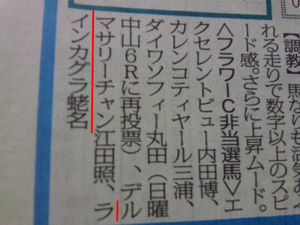 【調教】馬なりも活気あふ
れる走りで数字以上のスピ
ード感。さらに上昇ムード。
＜フラワーC非当選馬＞エ
クセレントビュー内田博、
カレンコティヤール三浦、
ダイワソフィー丸田（日曜
中山6Rに再投票）、デル
マサリーチャン江田照、ラ
インカグラ蛯名